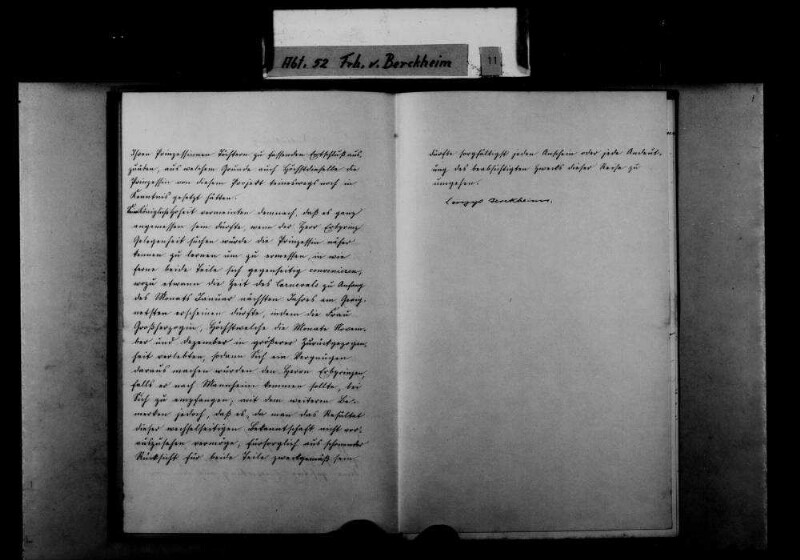 Abt. 52 Frh. v. Berckheim
11
Ihren Prinzessinnen Töchtern zu fassenden Entschluß aus,
zuüben, aus welchem Grunde auch Höchstdieselbe die
Prinzessin von diesem Projekt keineswegs noch in
Kenntnis gesetzt hätten.
Königliche Hoheit vermeinten demnach, daß es ganz
angemessen sein dürfte, wenn der Herr Erbprinz
Gelegenheit suchen würde die Prinzessin näher
kennen zu lernen um zu ermessen, in wie
ferne beide Teile sich gegenseitig convenieren,
wozu etwann die Zeit des Carnevals zu Anfang
des Monats Januar nächsten Jahres am Geeig-
netsten erscheinen dürfte, indem die Frau
Großherzogin, Höchstwelche die Monate Novem-
ber und Dezember in größerer Zurückgezogen-
heit verlebten, sodann Sich ein Vergnügen
daraus machen würden den Herrn Erbprinzen,
falls er nach Mannheim kommen sollte, bei
Sich zu empfangen; mit dem weiteren Be-
merken jedoch, daß es, da man das Resultat
dieser wechselseitigen Bekanntschaft nicht vor-
auszusehen vermöge, fürsorglich aus schonender
Rücksicht für beide Teile zweckgemäß sein
dürfte sorgfältigst jeden Anschein oder jede Andeut-
ung des beabsichtigten Zwecks dieser Reise zu
umgehen.
Berckheim.